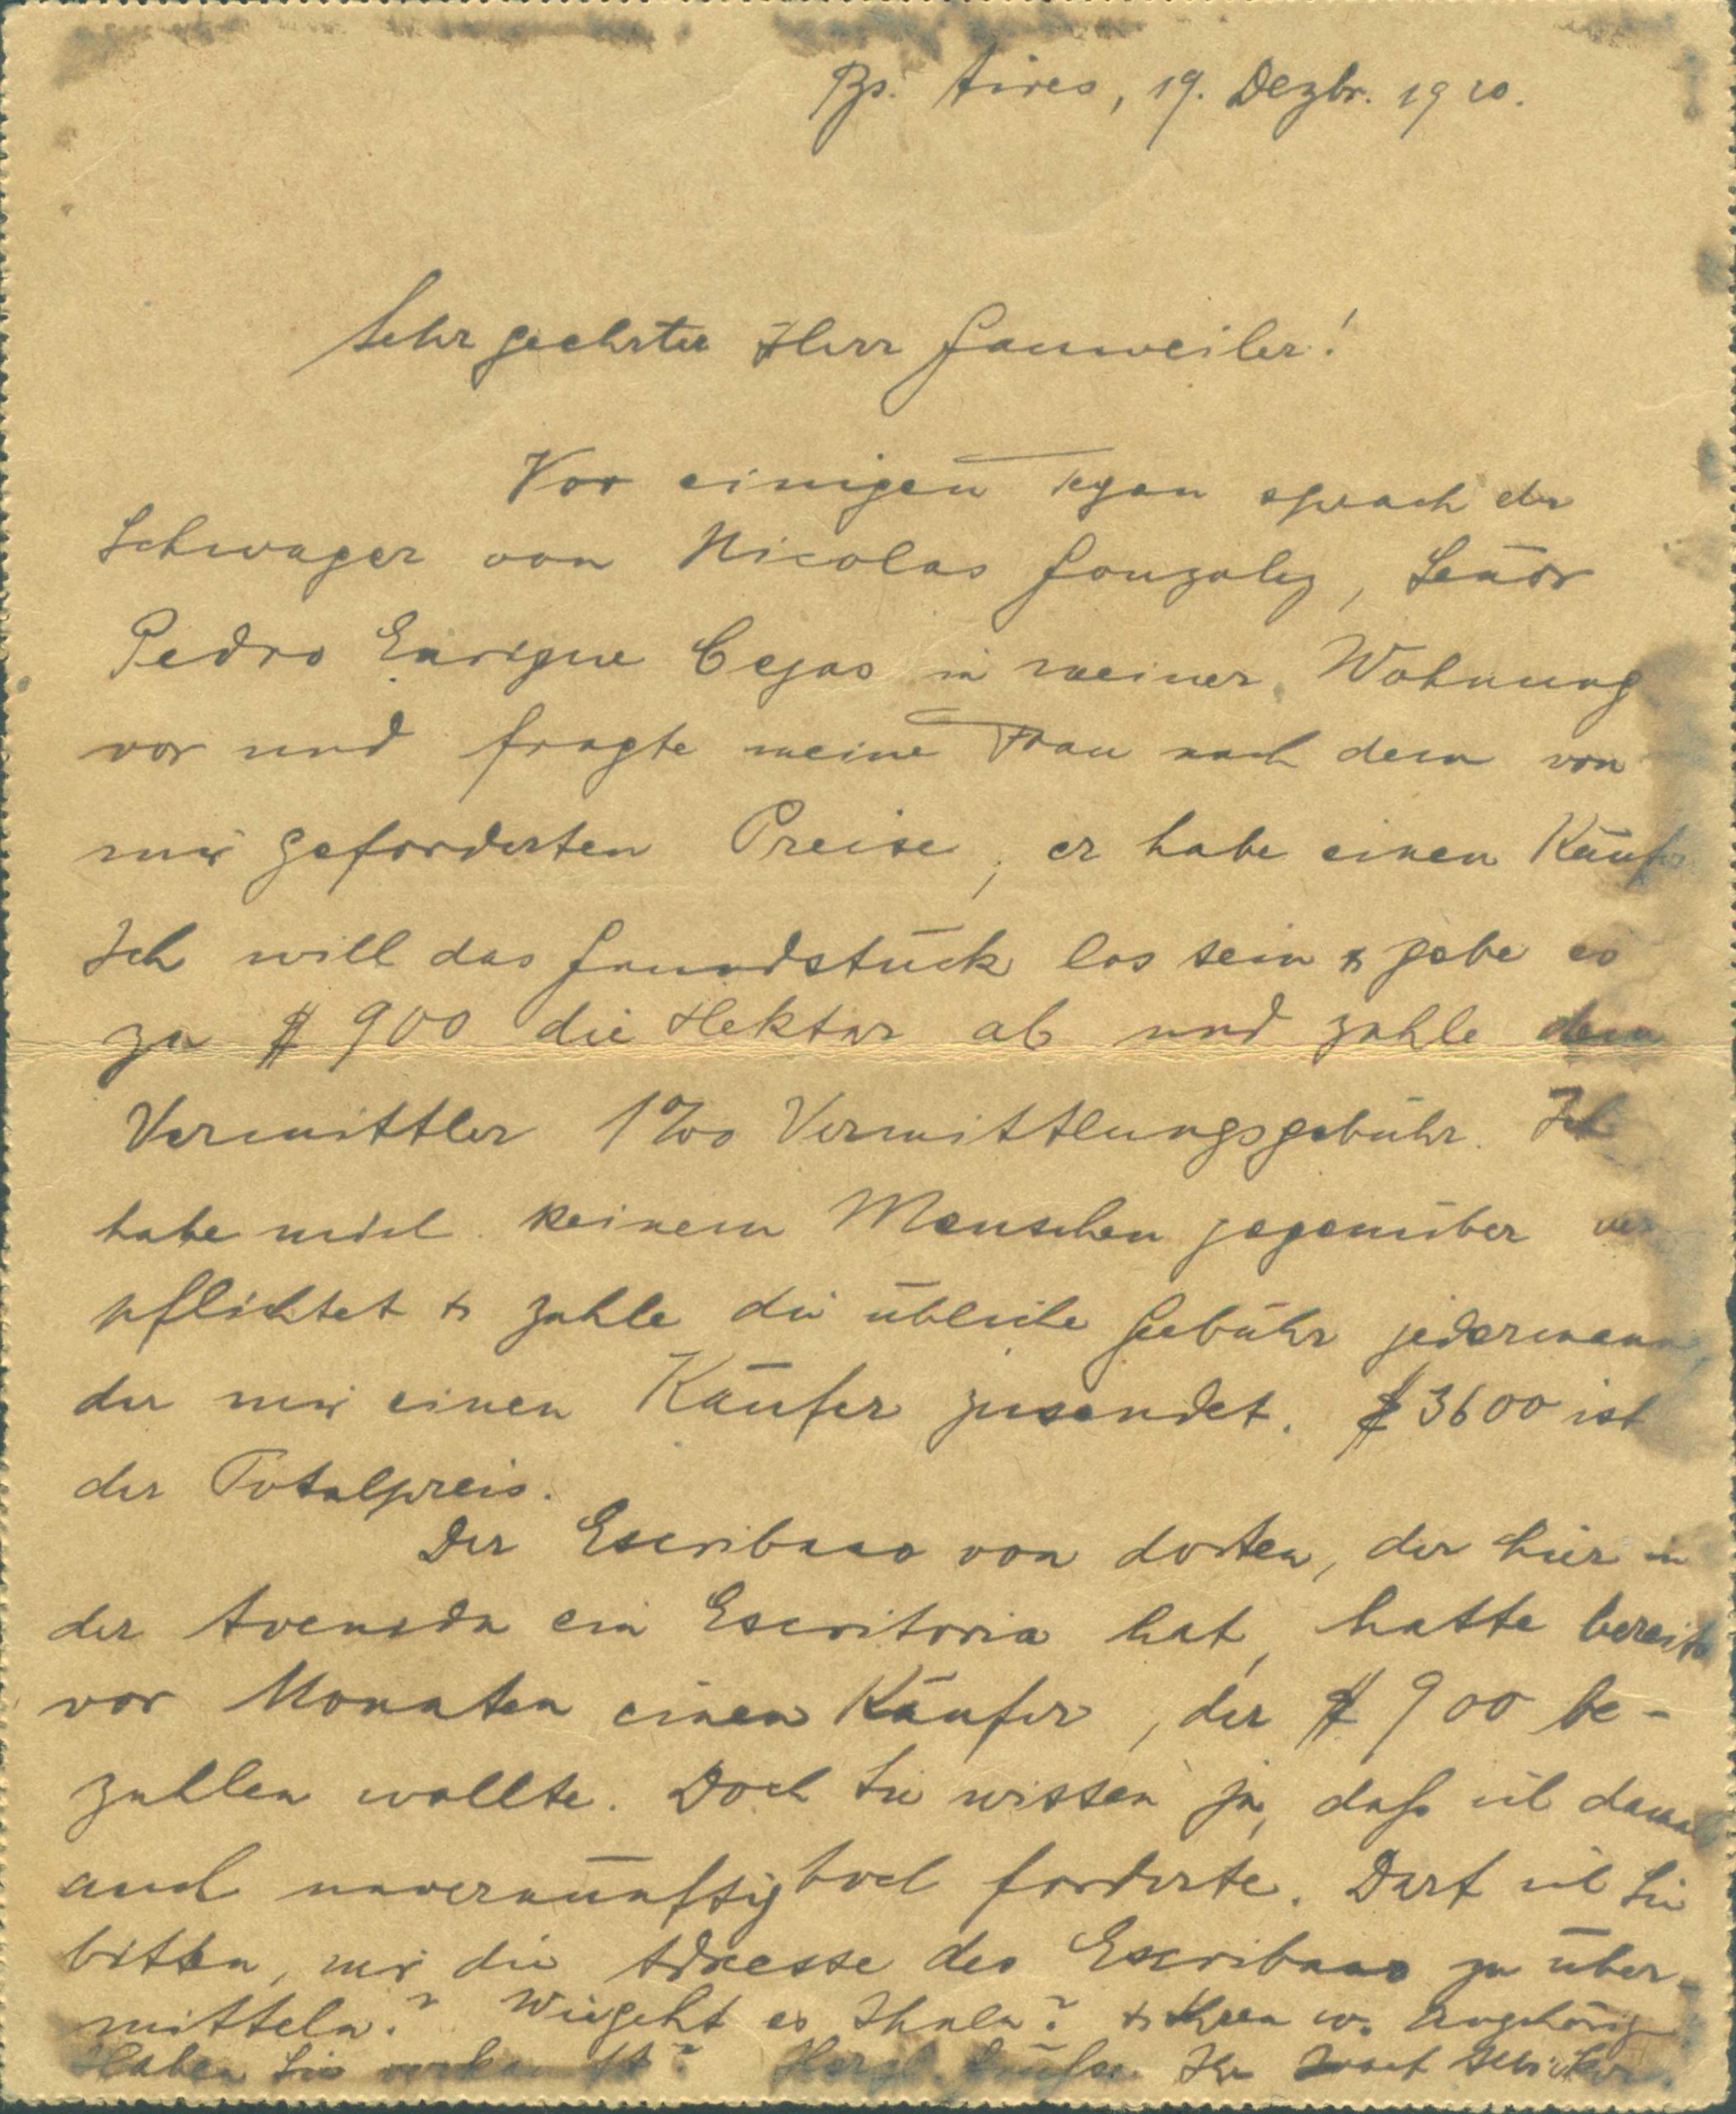 Bs. Aires, 19. Dezbr. 1920.
Sehr geehrter Herr Gauweiler!
Vor einigen Tagen sprach der
Schwager von Nicolas Gonzalez, Señor
Pedro Enrique Cejas in meiner Wohnung
vor und fragte meine Frau nach dem von
mir geforderten Preise, er habe einen Käufer
Ich will das Grundstück los sein & gebe es
zu $ 900 die Hektar ab und zahle dem
Vermittler 1% Vermittlungsgebühr. Ich
habe mich keinem Menschen gegenüber ver
pflichtet & zahle die übliche Gebühr jedermann,
der mir einen Käufer zusendet. $ 3600 ist
der Totalpreis.
Der Escribano von dorten, der hier in
der Avenida ein Escritoria hat, hatte bereits
vor Monaten einen Käufer, der $ 900 be-
zahlen wollte. Doch Sie wissen ja, daß ich damals
auch unvernünftig hoch forderte. Darf ich Sie
bitten, mir die Adresse des Escribano zu über-
mitteln? Wie geht es Ihnen? & Ihren w. Angehörig
Haben Sie verkauft? Herzl. Grüße Ihr Josef